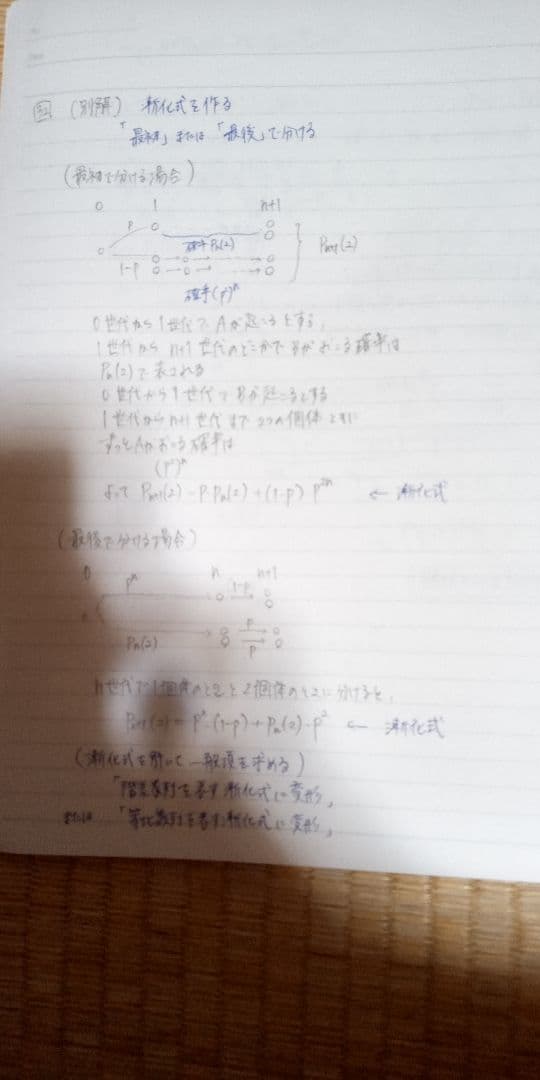 (別解) 漸化式を作る
「最初」または「最後」で分ける
(最初で分ける場合)
0 1 n+1
P
確率 Pn(2)
Pn+1(2)
1-P
確率(P²)ⁿ
0世代から1世代でAが起こるとする,
1世代からn+1世代のどこかでBがおこる確率は
Pn(2)で表される
0世代から1世代でBが起こるとする
1世代からn+1世代まで2つの個体ともに
ずっとAがおこる確率は
(P²)ⁿ
よって Pn+1(2) = P・Pn(2) + (1-P) P²ⁿ ← 漸化式
(最後で分ける場合)
0 n n+1
Pⁿ 1-P
P
Pn(2) P
n世代で1個体のときと2個体のときに分けると,
Pn+1(2) = Pⁿ・(1-P) + Pn(2)・P² ← 漸化式
(漸化式を解いて一般項を求める)
「階差数列を表す漸化式に変形」
または「等比数列を表す漸化式に変形」